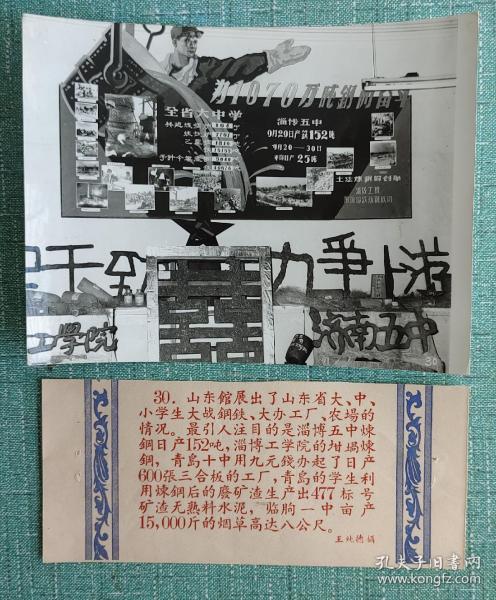 为1070万吨鋼而奋斗
全省大中学
淄博五中
9月29日产鉄152吨
9月20—30日
平均日产25吨
干全力争上游
工学院
济南五中
30
30. 山东館展出了山东省大、中、
小学生大战鋼鉄、大办工厂、农場的
情况。最引人注目的是淄博五中炼
鋼日产152吨,淄博工学院的坩堝煉
鋼,青島十中用九元錢办起了日产
600張三合板的工厂,青島的学生利
用煉鋼后的廢矿渣生产出477标号
矿渣无熟料水泥,临朐一中亩产
15,000斤的烟草高达八公尺。
孔夫子旧书网
www.kongfz.com